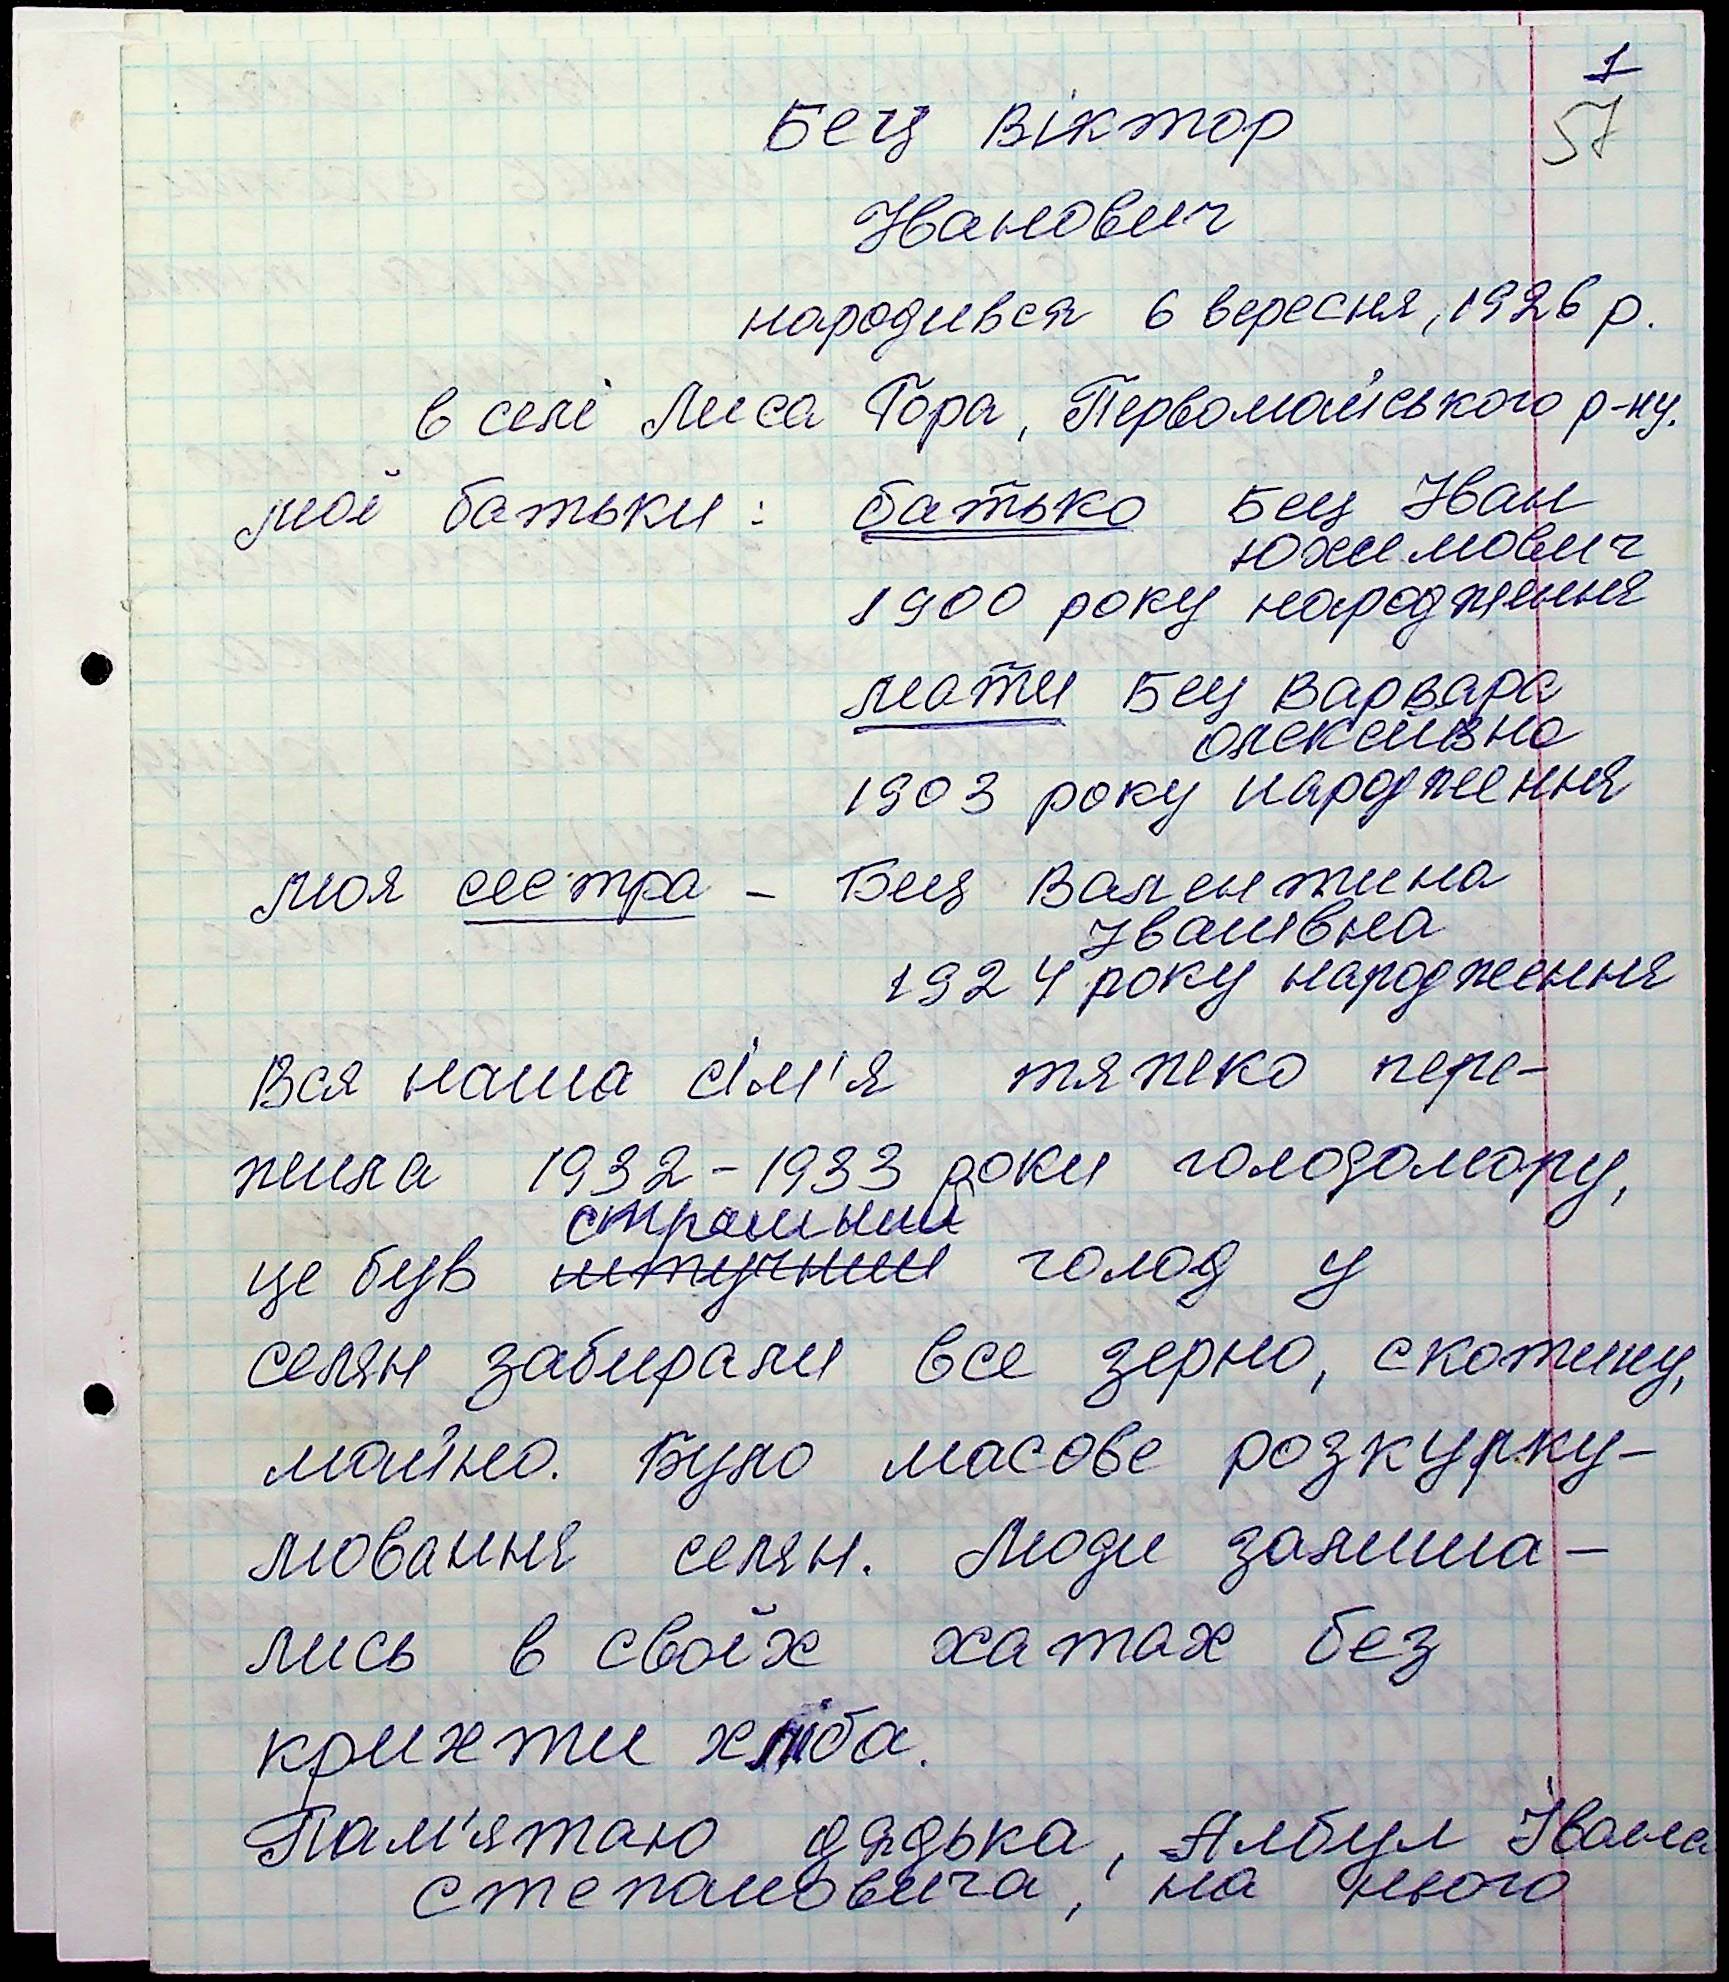 1
57
Бец Віктор
Іванович
народився 6 вересня, 1926 р.
в селі Лиса Гора, Первомайського р-ну.
мої батьки: батько Бец Іван
Юхимович
1900 року народження
мати Бец Варвара
Олексіївна
1903 року народження
моя сестра - Бец Валентина
Іванівна
1924 року народження
Вся наша сім'я тяжко пере-
жила 1932-1933 роки голодомору,
страшний
це був штучний голод у
селян забирали все зерно, скотину,
майно. Було масове розкурку-
лювання селян. Люди залиша-
лись в своїх хатах без
крихти хліба.
Пам'ятаю дядька, Албул Івана
Степановича, на нього